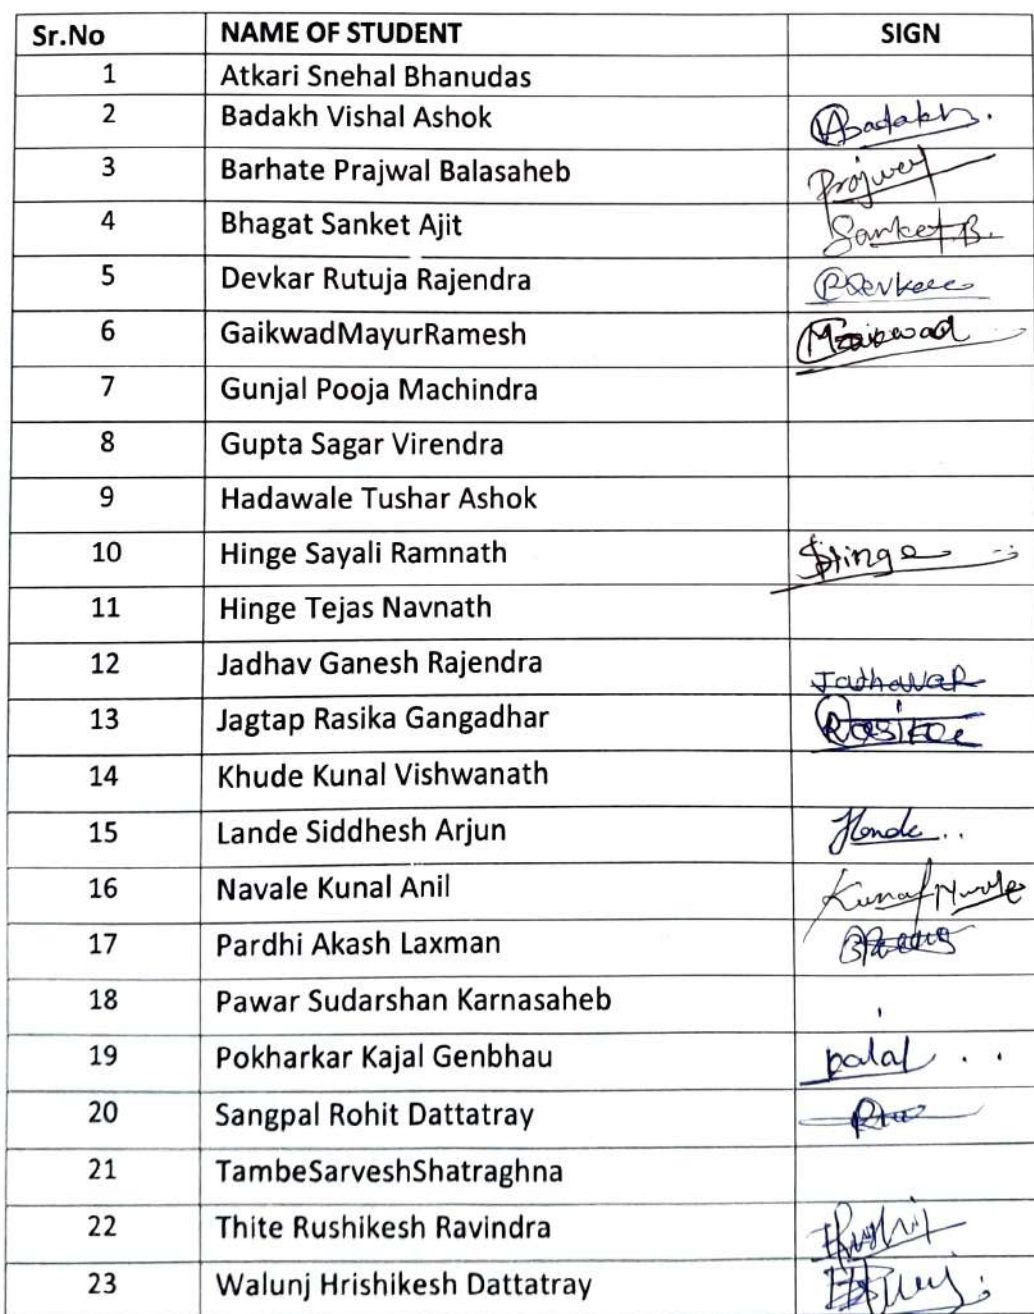 Sr.No NAME OF STUDENT SIGN
1 Atkari Snehal Bhanudas
2 Badakh Vishal Ashok Badakh.
3 Barhate Prajwal Balasaheb Prajwal
4 Bhagat Sanket Ajit Sanket.B.
5 Devkar Rutuja Rajendra
6 GaikwadMayurRamesh
7 Gunjal Pooja Machindra
8 Gupta Sagar Virendra
9 Hadawale Tushar Ashok
10 Hinge Sayali Ramnath SHinge
11 Hinge Tejas Navnath
12 Jadhav Ganesh Rajendra
13 Jagtap Rasika Gangadhar Rasika
14 Khude Kunal Vishwanath
15 Lande Siddhesh Arjun
16 Navale Kunal Anil Kunal
17 Pardhi Akash Laxman
18 Pawar Sudarshan Karnasaheb
19 Pokharkar Kajal Genbhau
20 Sangpal Rohit Dattatray
21 TambeSarveshShatraghna
22 Thite Rushikesh Ravindra
23 Walunj Hrishikesh Dattatray